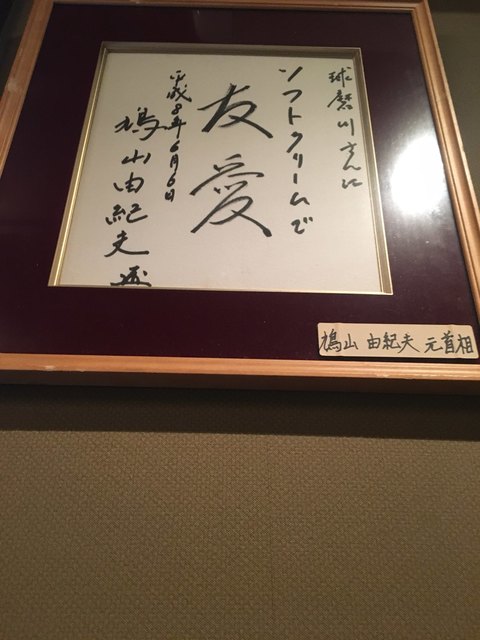 球磨川さんに
ソフトクリームで
友愛
平成8年6月6日
鳩山由紀夫
鳩山 由紀夫 元首相